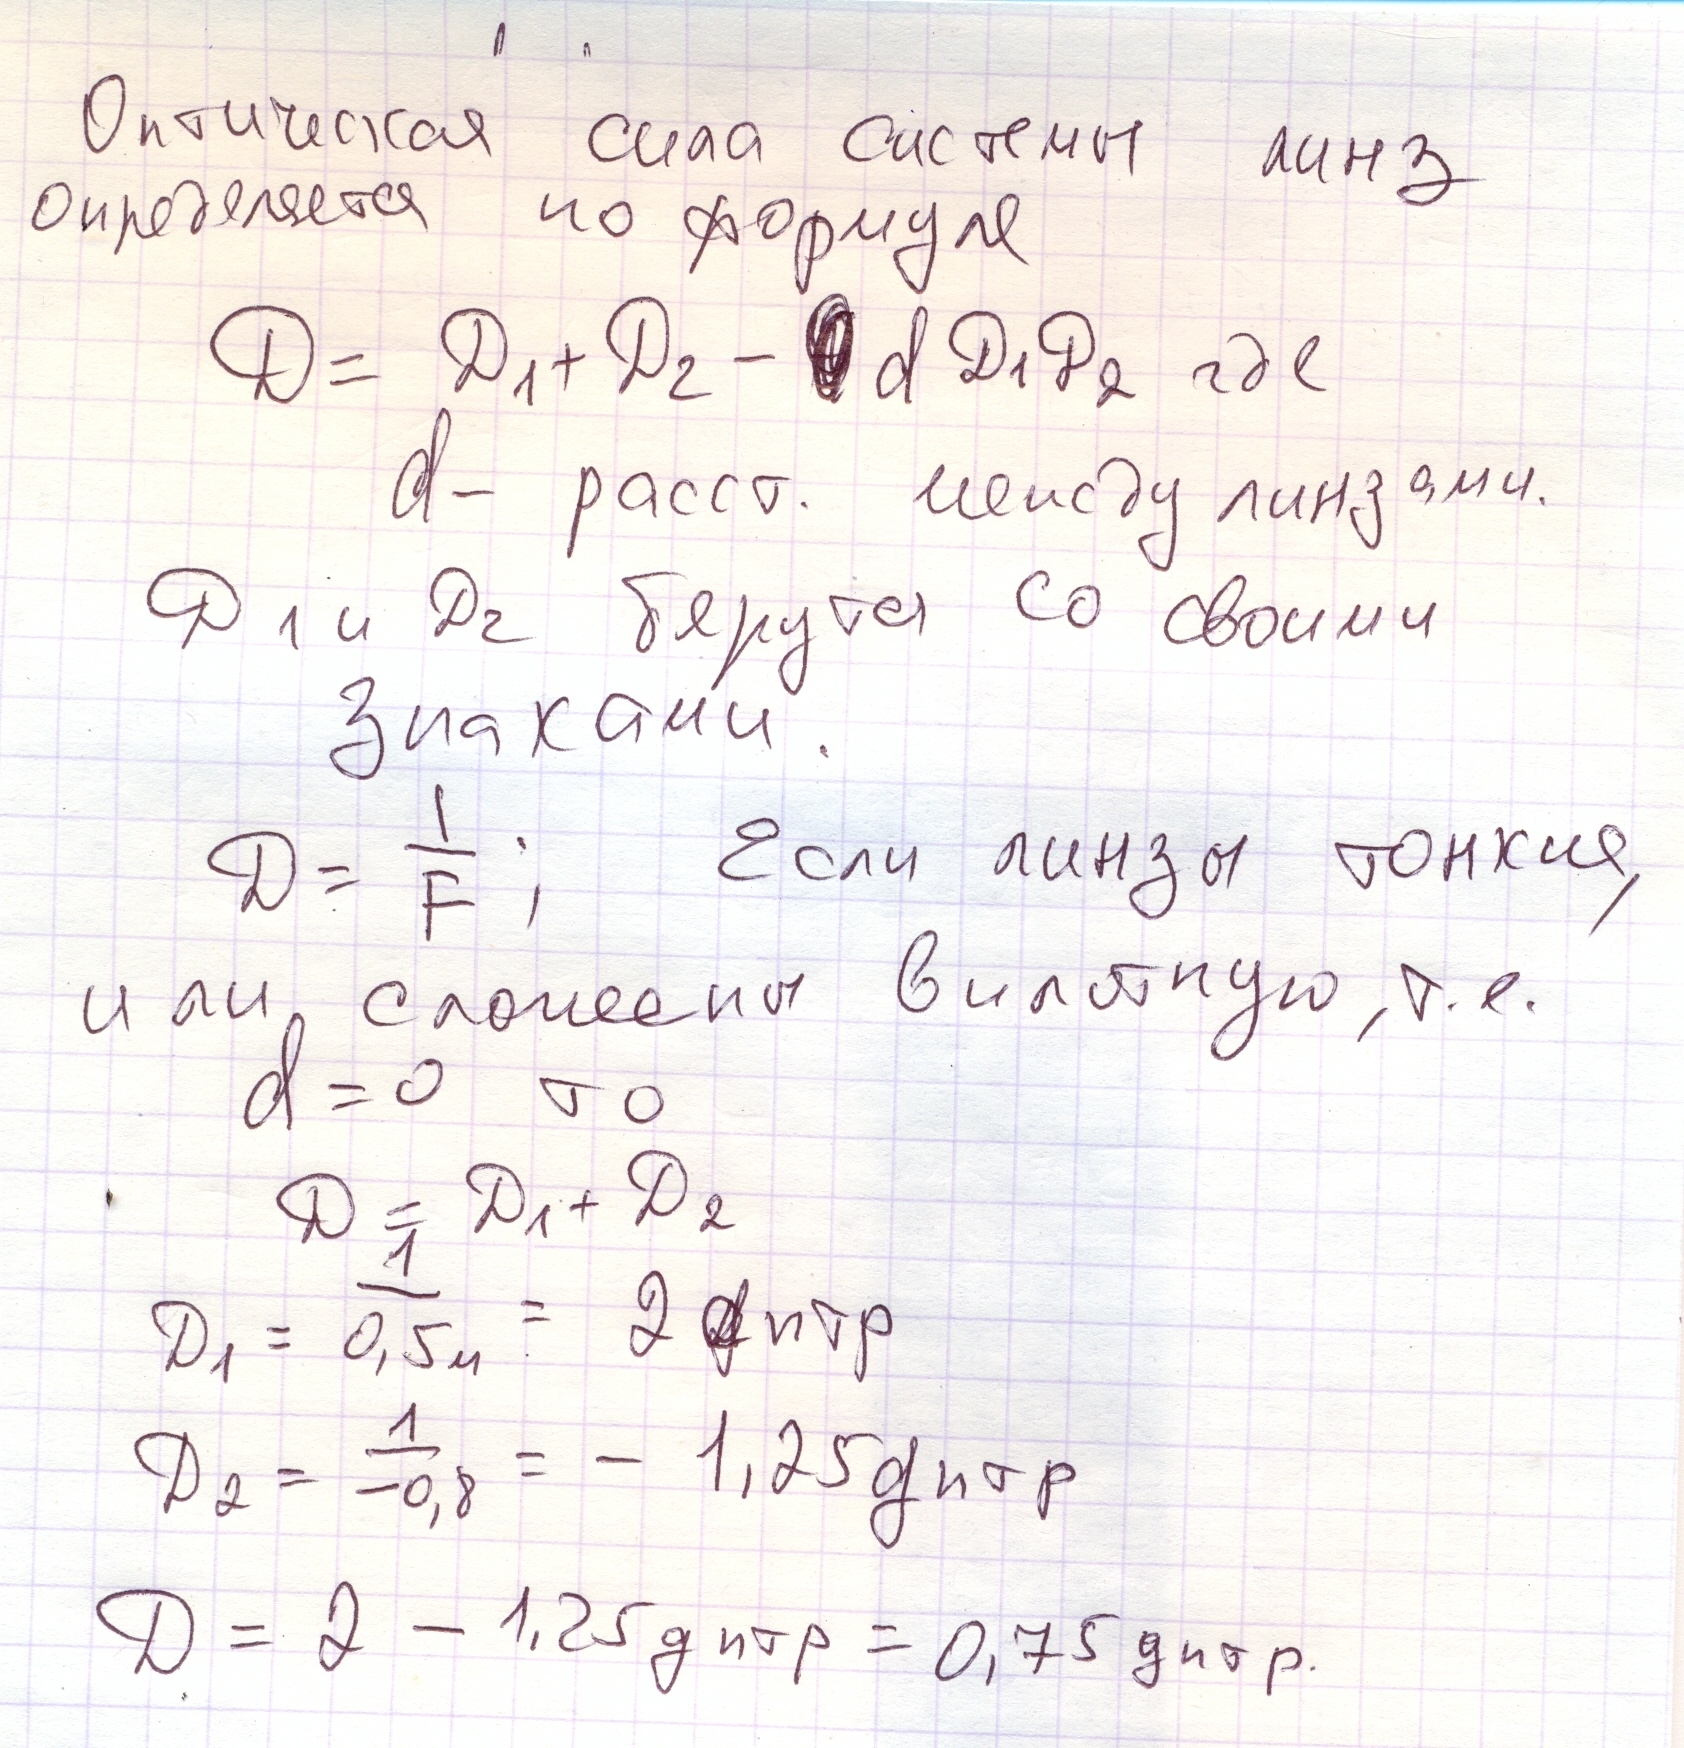 Оптическая сила системы линз
определяется по формуле
D = D₁ + D₂ - d D₁D₂ где
d - расст. между линзами.
D₁ и D₂ берутся со своими
знаками.
D = 1/F ; Если линзы тонкия,
или сложены вплотную, т.е.
d = 0 то
D = D₁ + D₂
D₁ = 1/0,5м = 2 дптр
D₂ = 1/-0,8 = - 1,25 дптр
D = 2 - 1,25 дптр = 0,75 дптр.